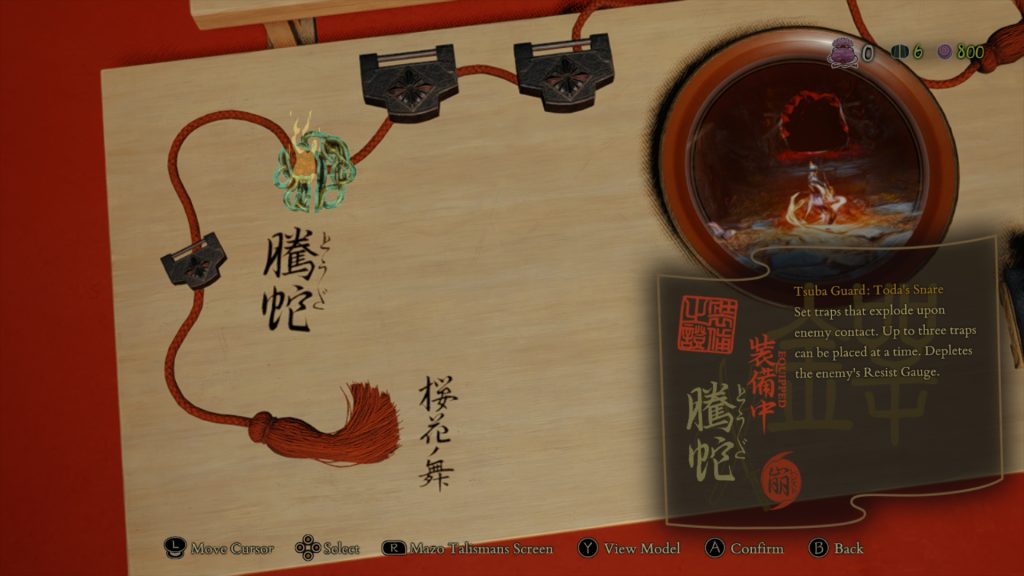 0 6 800
騰蛇
とうだ
桜花ノ舞
Tsuba Guard: Toda's Snare
Set traps that explode upon
enemy contact. Up to three traps
can be placed at a time. Depletes
the enemy's Resist Gauge.
装備中
EQUIPPED
騰蛇
とうだ
崩
L Move Cursor
Select
R Mazo Talismans Screen
Y View Model
A Confirm
B Back